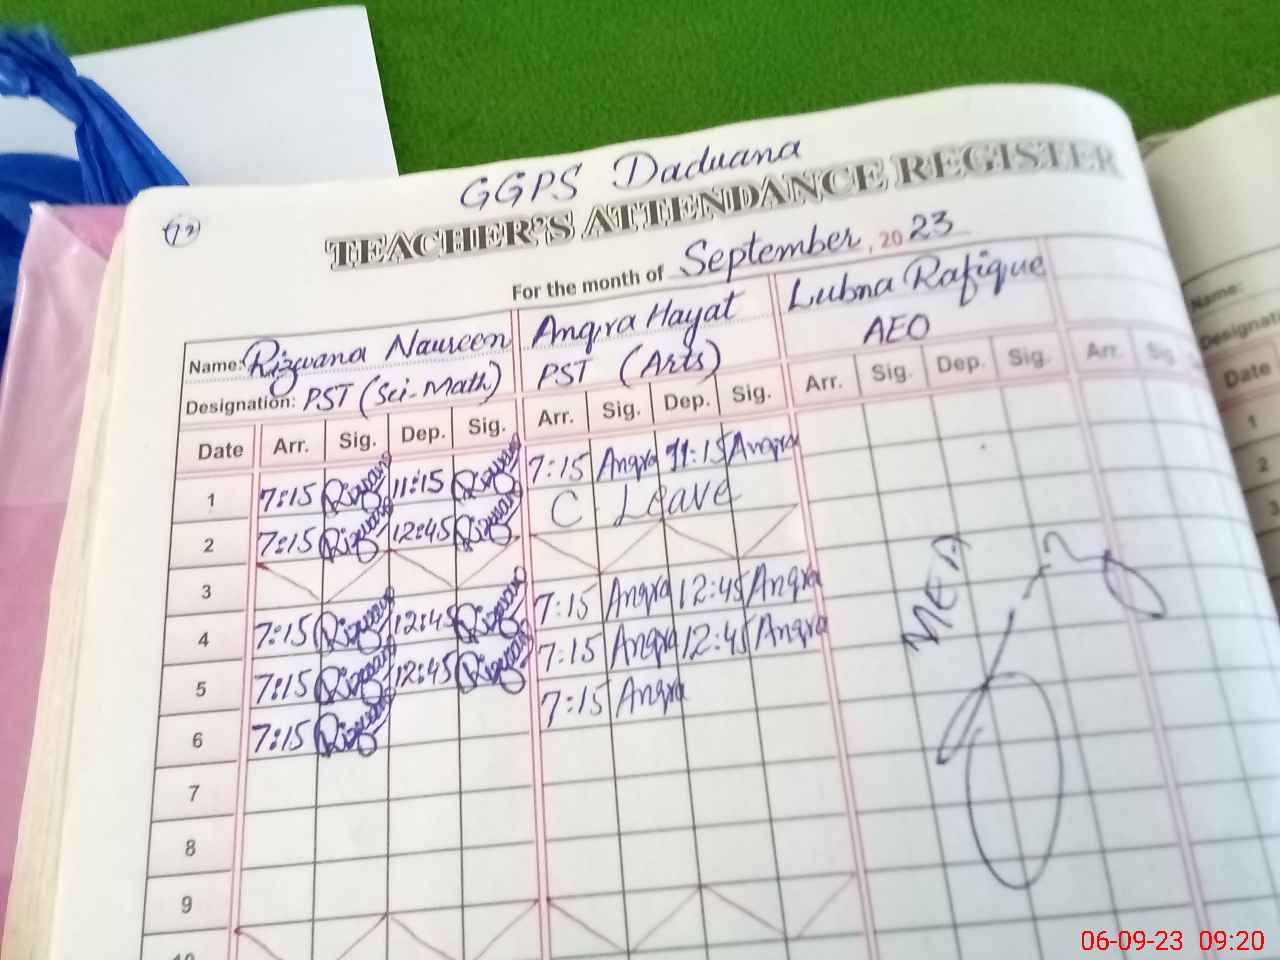 12
GGPS Daduana
TEACHER'S ATTENDANCE REGISTER
For the month of September, 2023
Name: Rizwana Naureen Anqra Hayat Lubna Rafique
Designation: PST (Sci-Math) PST (Arts) AEO
Date Arr. Sig. Dep. Sig. Arr. Sig. Dep. Sig. Arr. Sig. Dep. Sig. Arr. Sig.
1 7:15 Rizwana 11:15 Rizwana 7:15 Anqra 11:15 Anqra
2 7:15 Rizwana 12:45 Rizwana C Leave
3
4 7:15 Rizwana 12:45 Rizwana 7:15 Anqra 12:45 Anqra
5 7:15 Rizwana 12:45 Rizwana 7:15 Anqra 12:45 Anqra
6 7:15 Rizwana 7:15 Anqra
7
8
9
10
MEA
Name:
Designati
Date
1
2
3
06-09-23 09:20